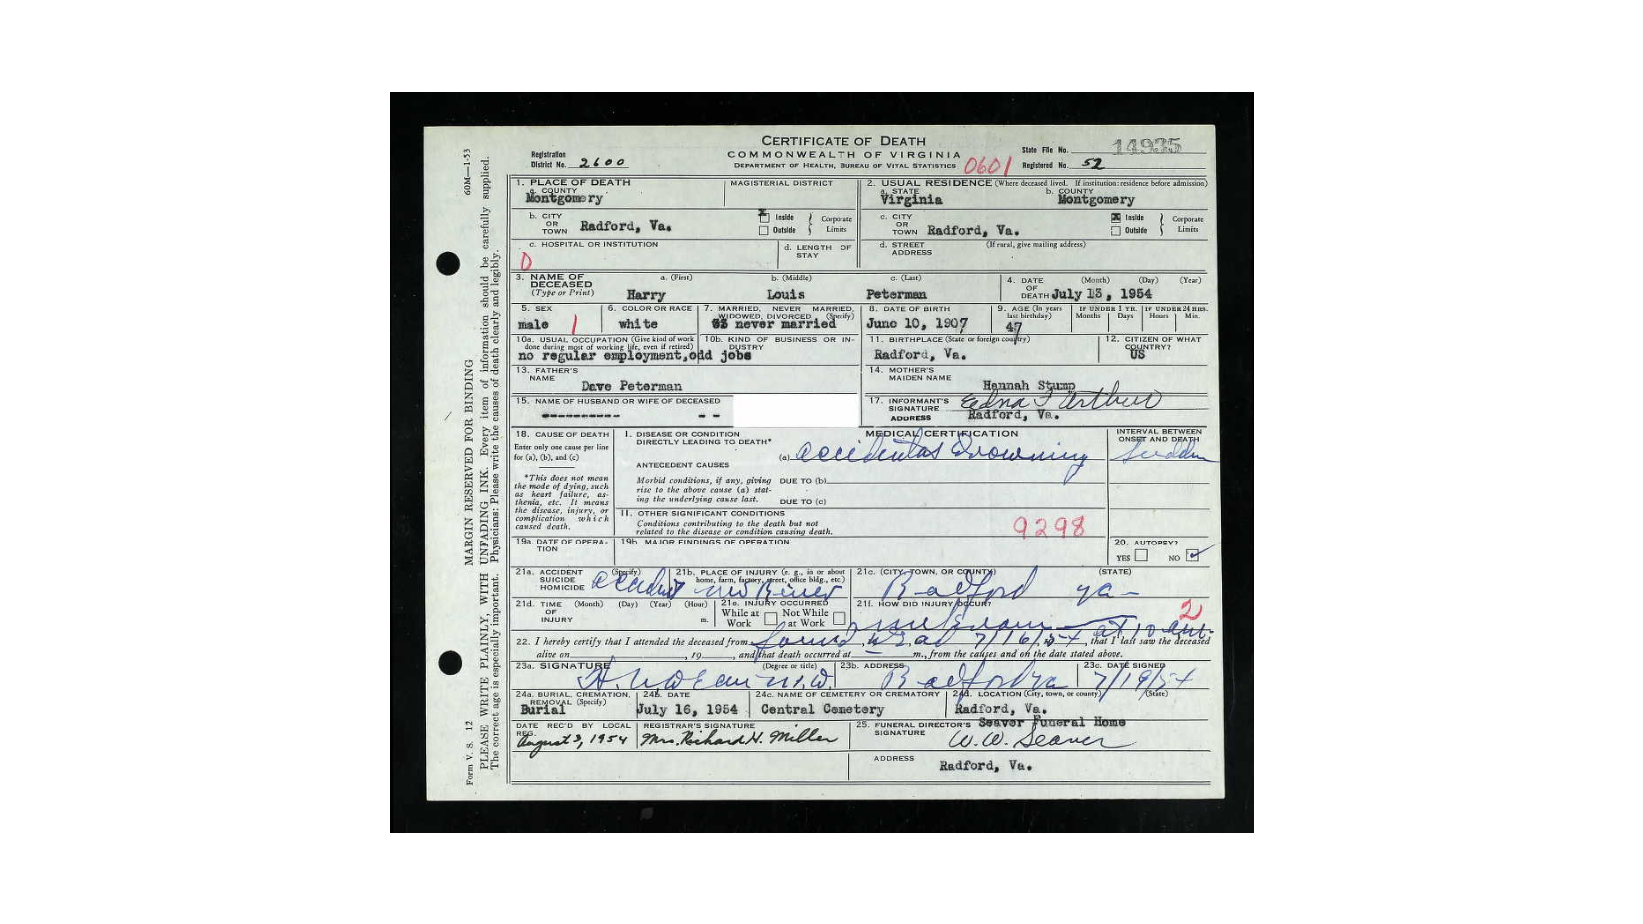 CERTIFICATE OF DEATH
COMMONWEALTH OF VIRGINIA
DEPARTMENT OF HEALTH, BUREAU OF VITAL STATISTICS
0601
Registration District No. 2600
State File No. 14935
Registered No. 52
60M—1-53
MARGIN RESERVED FOR BINDING
PLEASE WRITE PLAINLY, WITH UNFADING INK. Every item of information should be carefully supplied.
The correct age is especially important. Physicians: Please write the causes of death clearly and legibly.
Form V. S. 12
1. PLACE OF DEATH
a. COUNTY
Montgomery
MAGISTERIAL DISTRICT
2. USUAL RESIDENCE (Where deceased lived. If institution: residence before admission)
a. STATE
Virginia
b. COUNTY
Montgomery
b. CITY OR TOWN Radford, Va.
Inside
Outside
Corporate Limits
c. CITY OR TOWN Radford, Va.
Inside
Outside
Corporate Limits
c. HOSPITAL OR INSTITUTION
0
d. LENGTH OF STAY
d. STREET ADDRESS
(If rural, give mailing address)
3. NAME OF DECEASED
(Type or Print)
a. (First)
Harry
b. (Middle)
Louis
c. (Last)
Peterman
4. DATE OF DEATH
(Month) (Day) (Year)
July 13, 1954
5. SEX
male
1
6. COLOR OR RACE
white
7. MARRIED, NEVER MARRIED, WIDOWED, DIVORCED (Specify)
never married
8. DATE OF BIRTH
June 10, 1907
9. AGE (In years last birthday)
47
IF UNDER 1 YR.
Months Days
IF UNDER 24 HRS.
Hours Min.
10a. USUAL OCCUPATION (Give kind of work done during most of working life, even if retired)
no regular employment, odd jobs
10b. KIND OF BUSINESS OR INDUSTRY
11. BIRTHPLACE (State or foreign country)
Radford, Va.
12. CITIZEN OF WHAT COUNTRY?
US
13. FATHER'S NAME
Dave Peterman
14. MOTHER'S MAIDEN NAME
Hannah Stump
15. NAME OF HUSBAND OR WIFE OF DECEASED
---------- --
17. INFORMANT'S SIGNATURE Edna F Arthur
ADDRESS Radford, Va.
18. CAUSE OF DEATH
Enter only one cause per line for (a), (b), and (c)
*This does not mean the mode of dying, such as heart failure, asthenia, etc. It means the disease, injury, or complication which caused death.
MEDICAL CERTIFICATION
I. DISEASE OR CONDITION DIRECTLY LEADING TO DEATH*
(a) accidental Drowning
INTERVAL BETWEEN ONSET AND DEATH
Sudden
ANTECEDENT CAUSES
Morbid conditions, if any, giving rise to the above cause (a) stating the underlying cause last.
DUE TO (b)
DUE TO (c)
II. OTHER SIGNIFICANT CONDITIONS
Conditions contributing to the death but not related to the disease or condition causing death.
9298
19a. DATE OF OPERATION
19b. MAJOR FINDINGS OF OPERATION
20. AUTOPSY?
YES NO
21a. ACCIDENT SUICIDE HOMICIDE
(Specify)
accident
21b. PLACE OF INJURY (e. g., in or about home, farm, factory, street, office bldg., etc.)
River
21c. (CITY, TOWN, OR COUNTY)
(STATE)
Radford Va-
21d. TIME OF INJURY
(Month) (Day) (Year) (Hour)
m.
21e. INJURY OCCURRED
While at Work
Not While at Work
21f. HOW DID INJURY OCCUR?
2
22. I hereby certify that I attended the deceased from found 7/16, 54, at 10 that I last saw the deceased
alive on , 19 , and that death occurred at m., from the causes and on the date stated above.
23a. SIGNATURE
(Degree or title)
23b. ADDRESS
Radford Va
23c. DATE SIGNED
7/19/54
24a. BURIAL, CREMATION, REMOVAL (Specify)
Burial
24b. DATE
July 16, 1954
24c. NAME OF CEMETERY OR CREMATORY
Central Cemetery
24d. LOCATION (City, town, or county) (State)
Radford, Va.
DATE REC'D BY LOCAL REG.
August 3, 1954
REGISTRAR'S SIGNATURE
Mrs. Richard H. Miller
25. FUNERAL DIRECTOR'S SIGNATURE
Seaver Funeral Home
W.W. Seaver
ADDRESS
Radford, Va.